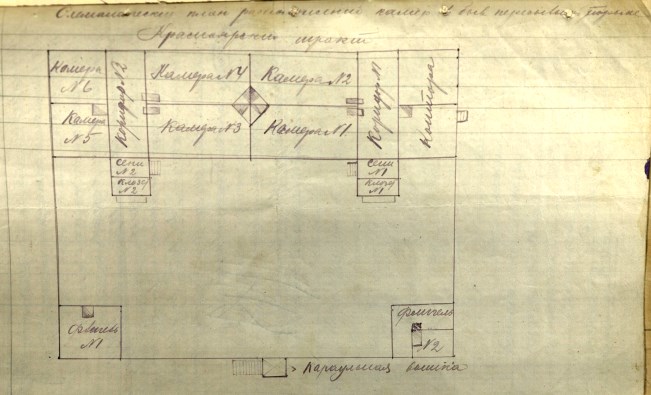 план камер в быв. пересыльной тюрьме
Красноярский тракт
Камера №6
Коридор №2
Камера №4
Камера №2
Коридор №1
Контора
Камера №5
Камера №3
Камера №1
Сени №2
Сени №1
Клозет №2
Клозет №1
Флигель №1
Флигель №2
Караульная вышка